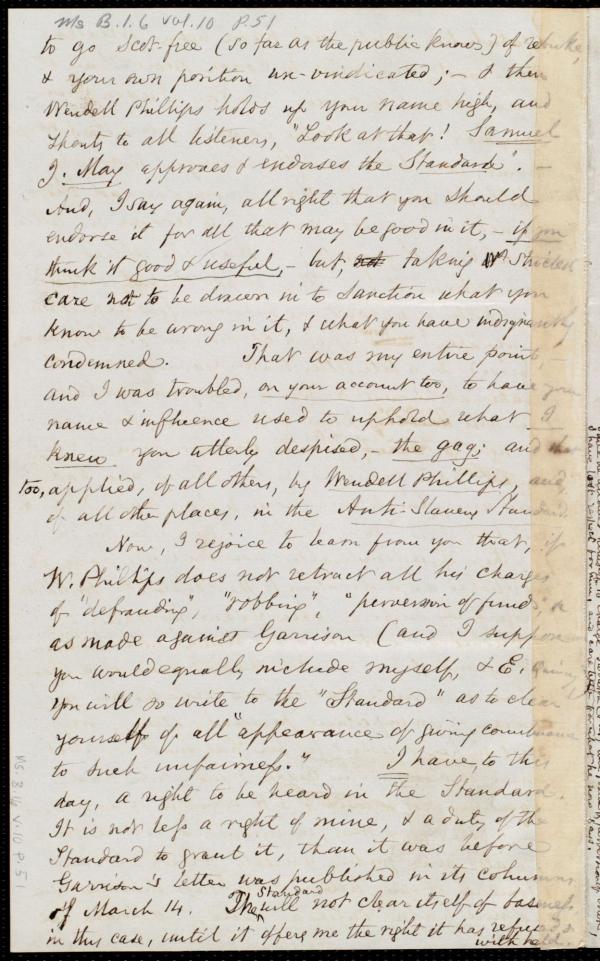 Ms B.1.6 Vol.10 P.51
to go scot-free (so far as the public knows) of rebuke,
& your own position un-vindicated; - & then
Wendell Phillips holds up your name high, and
shouts to all listeners, "Look at that! Samuel
J. May approves & endorses the Standard". -
And, I say again, all right that you should
endorse it for all that may be good in it, - if you
think it good & useful, - but, taking strictest
care not to be drawn in to sanction what you
know to be wrong in it, & what you have indignantly
condemned. That was my entire point, -
and I was troubled, on your account too, to have your
name & influence used to uphold what I
knew you utterly despised, - the gag; and that
too, applied, of all others, by Wendell Phillips, and,
of all other places, in the Anti-Slavery Standard.
Now, I rejoice to learn from you that, if
W. Phillips does not retract all his charges
of "defrauding", "robbing", "perversion of funds",
as made against Garrison (and I suppose
you would equally include myself, & E. Quincy,)
you will so write to the "Standard" as to clear
yourself of all "appearance of giving countenance
to such unfairness." I have, to this
day, a right to be heard in the Standard.
It is not less a right of mine, & a duty of the
Standard to grant it, than it was before
Garrison's letter was published in its columns
of March 14. The Standard will not clear itself of baseness,
in this case, until it offers me the right it has refused &
withheld.
Ms.B.1.6 V.10 P.51